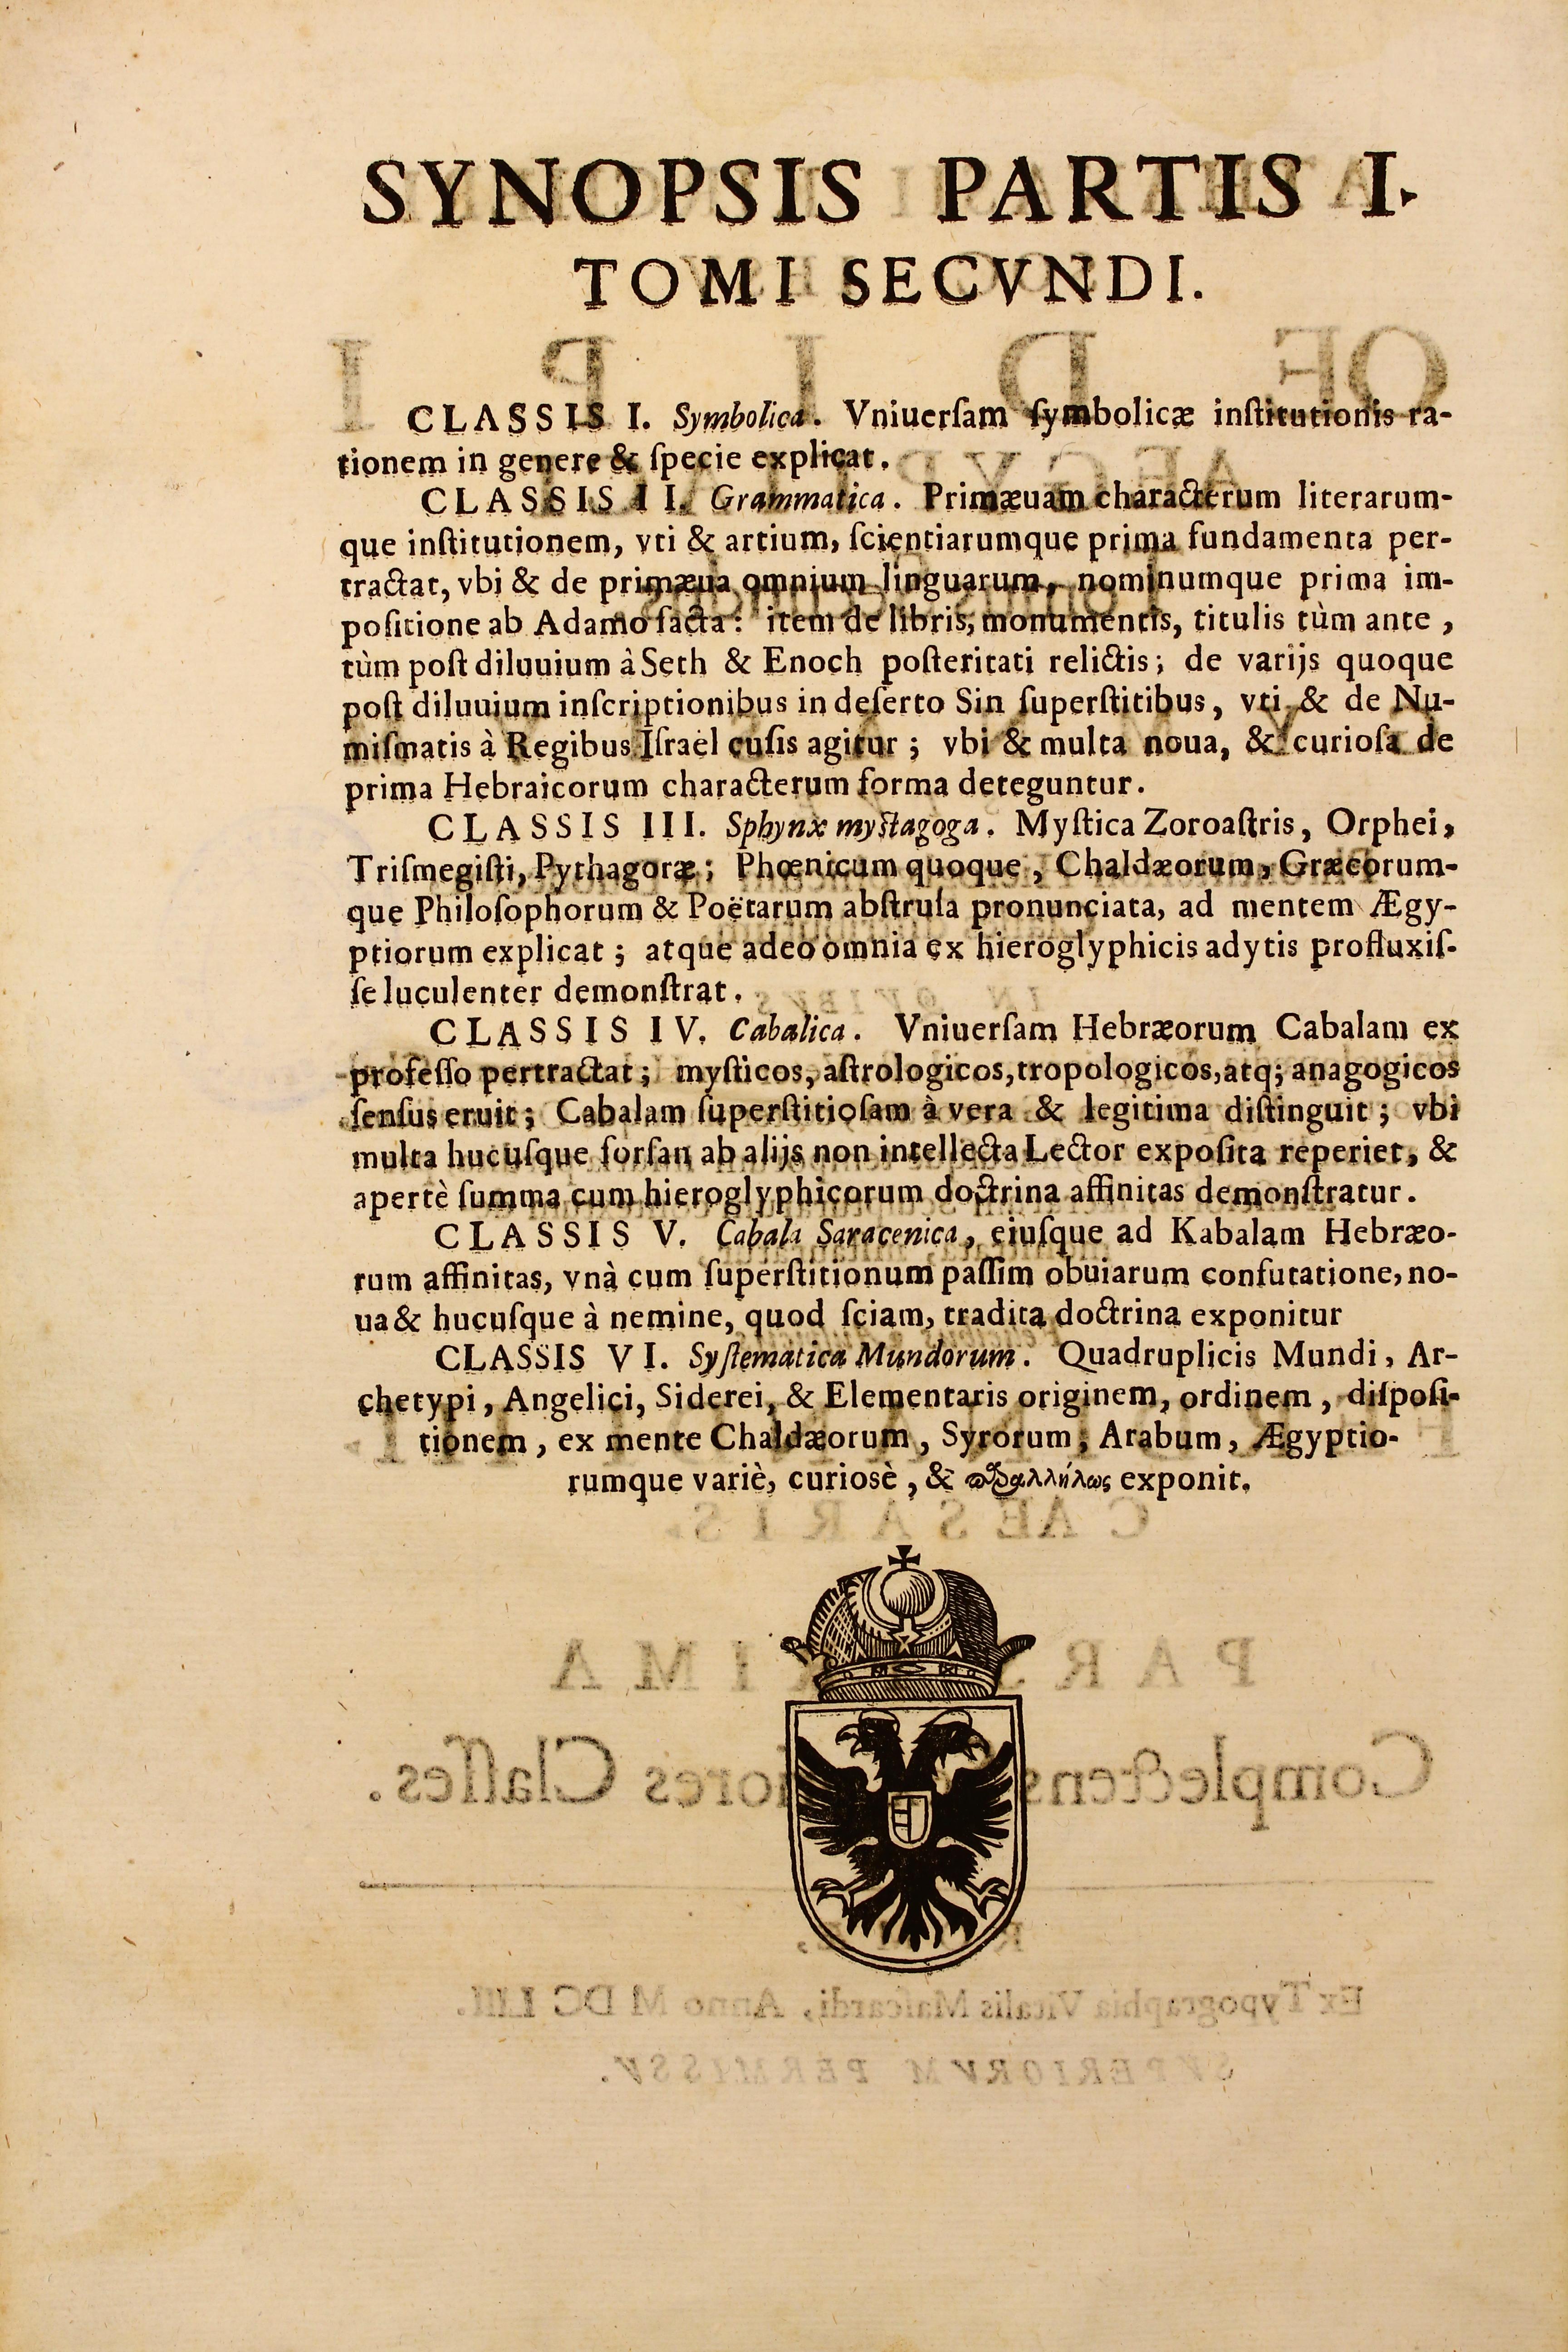 SYNOPSIS PARTIS I.
TOMI SECVNDI.
CLASSIS I. Symbolica. Vniuerſam ſymbolicæ inſtitutionis ra-
tionem in genere & ſpecie explicat.
CLASSIS II. Grammatica. Primæuam characterum literarum-
que inſtitutionem, vti & artium, ſcientiarumque prima fundamenta per-
tractat, vbi & de primæua omnium linguarum, nominumque prima im-
poſitione ab Adamo facta: item de libris, monumentis, titulis tùm ante,
tùm poſt diluuium à Seth & Enoch poſteritati relictis; de varijs quoque
poſt diluuium inſcriptionibus in deſerto Sin ſuperſtitibus, vti & de Nu-
miſmatis à Regibus Iſrael cuſis agitur; vbi & multa noua, & curioſa de
prima Hebraicorum characterum forma deteguntur.
CLASSIS III. Sphynx myſtagoga. Myſtica Zoroaſtris, Orphei,
Triſmegiſti, Pythagoræ; Phœnicum quoque, Chaldæorum, Græcorum-
que Philoſophorum & Poëtarum abſtruſa pronunciata, ad mentem Ægy-
ptiorum explicat; atque adeo omnia ex hieroglyphicis adytis profluxiſ-
ſe luculenter demonſtrat.
CLASSIS IV. Cabalica. Vniuerſam Hebræorum Cabalam ex
profeſſo pertractat; myſticos, aſtrologicos, tropologicos, atq; anagogicos
ſenſus eruit; Cabalam ſuperſtitioſam à vera & legitima diſtinguit; vbi
multa hucuſque forſan ab alijs non intellecta Lector expoſita reperiet, &
apertè ſumma cum hieroglyphicorum doctrina affinitas demonſtratur.
CLASSIS V. Cabala Saracenica, eiuſque ad Kabalam Hebræo-
rum affinitas, vnà cum ſuperſtitionum paſſim obuiarum confutatione, no-
ua & hucuſque à nemine, quod ſciam, tradita doctrina exponitur
CLASSIS VI. Syſtematica Mundorum. Quadruplicis Mundi, Ar-
chetypi, Angelici, Siderei, & Elementaris originem, ordinem, diſpoſi-
tionem, ex mente Chaldæorum, Syrorum, Arabum, Ægyptio-
rumque variè, curiosè, & παραλλήλως exponit.